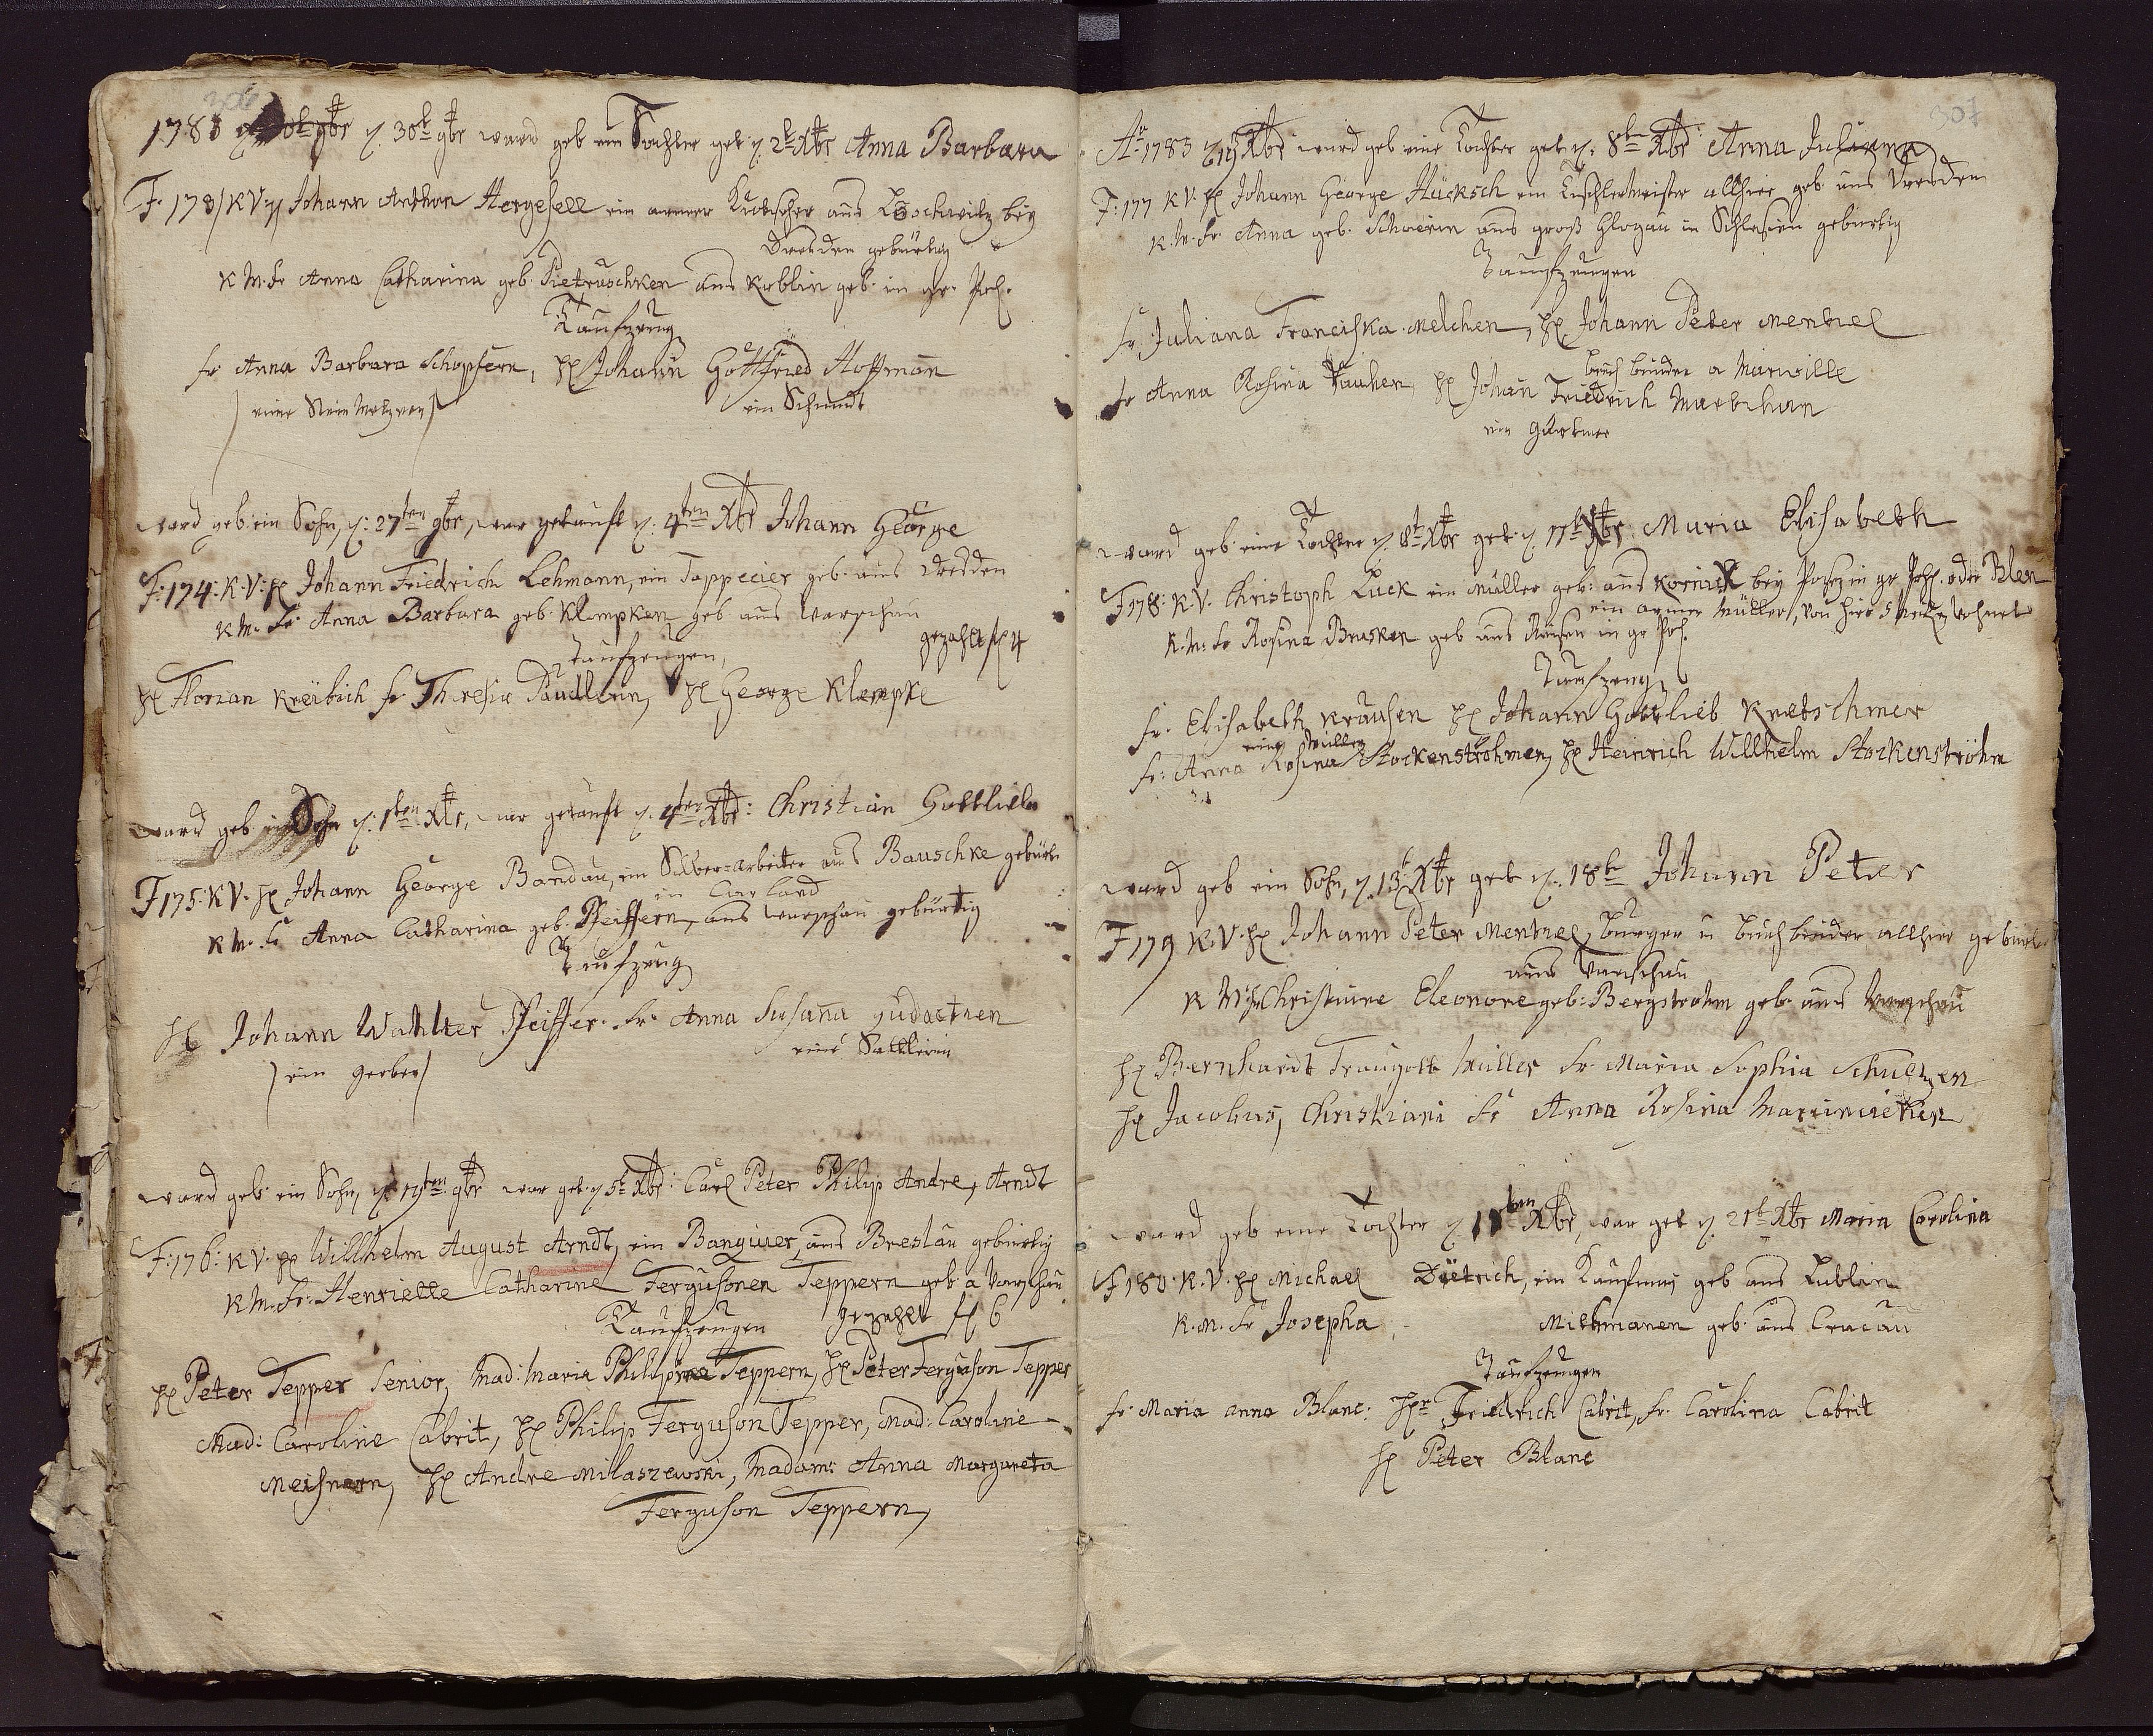 306
1783 d. 30t 9br ward geb ein Tochter get d. 2t Xbr Anna Barbara
F. 173 / K V H Johann Anthon Hergesell ein armer Kutscher aus Loschwitz bey
Dresden gebürtig
K M. Fr Anna Catharina geb. Pietruschken aus Koblin geb. in gr. Pohl.
Taufzeug
Fr Anna Barbara Schopfern, H Johann Gottfried Hoffman
ein Schmidt
ward geb. ein Sohn, d. 27ten 9br, war getauft d. 4ten Xbr Johann George
F. 174: K. V: H Johann Friedrich Lehmann, ein Tappecier geb. aus Dresden
K M. Fr Anna Barbara geb. Klempken geb. aus Warschau
gezahlt fl 4
Taufzeugen,
H Florian Kreibich Fr Theresia Paudlerin, H George Klempke
ward geb. ein Sohn d. 1ten Xbr, war getauft d. 4ten Xbr: Christian Gottlieb
F 175: K V. H Johann George Bandau, ein Silber=arbeiter aus Bauschke gebürt
in Curland
K M. Fr Anna Catharina geb. Pfeiffern, aus Warschau gebürtig
Taufzeug
H Johann Wahlter Pfeiffer. Fr. Anna Susana
eine Sattlerin
ein Gerber
ward geb. ein Sohn, d. 19ten 9br war get. d 5t Xbr: Carl Peter Philip Andre, Arndt
F: 176: K V. H Willhelm August Arndt, ein Banquier, aus Breslau gebürtig
K M. Fr: Henriette Catharine Fergusonen Teppern geb. a Warschau
Taufzeugen gezahlt fl 6
H Peter Tepper Senior, Mad: Maria Philipine Teppern, H Peter Ferguson Tepper
Mad: Caroline Cabrit, H Philip Ferguson Tepper, Mad: Caroline
Meisnern, H Andre Milaszewski, Madam: Anna Margareta
Ferguson Teppern,
307
Ao 1783 d 1t Xbr ward geb eine Tochter get d. 8ten Xbr Anna Juliana
F. 177 K V. H Johann George Hücksch ein Tischlermeister allhier geb. aus Dresden
K. M. Fr. Anna geb. Schwerin aus groß Glogau in Schlesien gebürtig
Taufzeugen
Fr Juliana Franciska Melchen, H Johann Peter Mentzel
Buchbinder a Marwille
Fr Anna Rosina Pauken, H Johan Friedrich
ein Gärtner
ward geb eine Tochter d. 8t Xbr get d. 17t Xbr Maria Elisabeth
F 178: K. V. Christoph Luck ein Müller geb: aus bey in gr Pohl. oder Blen
ein armer Müller, von hier 5 Meilen wohnet
K. M: Fr Rosina Brusken geb aus Reisen in gr Pohl
Taufzeug
Fr. Elisabeth Krausen H Johann Gottlieb Kretschmer
eine Müller
Fr: Anna Rosina Stockenströhmen, H Heinrich Willhelm Stockenströhm
ward geb ein Sohn, d. 13t Xbr get d. 18t Johann Peter
F 179 K. V. H Johann Peter Mentzel, Bürger u Buchbinder allhier gebürt
aus Warschau
K M: Fr Christiane Eleonore geb: Bergströhm geb. aus Warschau
H Bernhardt Traugott Müller Fr. Maria Sophia Schultzen
H Jacobus, Christiani Fr Anna Rosina
ward geb eine Tochter d 18ten Xbr, war get d. 21t Xbr Maria Carolina
F 180. K. V. H Michael Dietrich, ein Kaufman geb aus Lublin
K. M. Fr Josepha, Mithmanen geb. aus Cracau
Taufzeugen
Fr. Maria Anna Blanc: Hr Friedrich Cabrit, Fr. Carolina Cabrit
H Peter Blanc